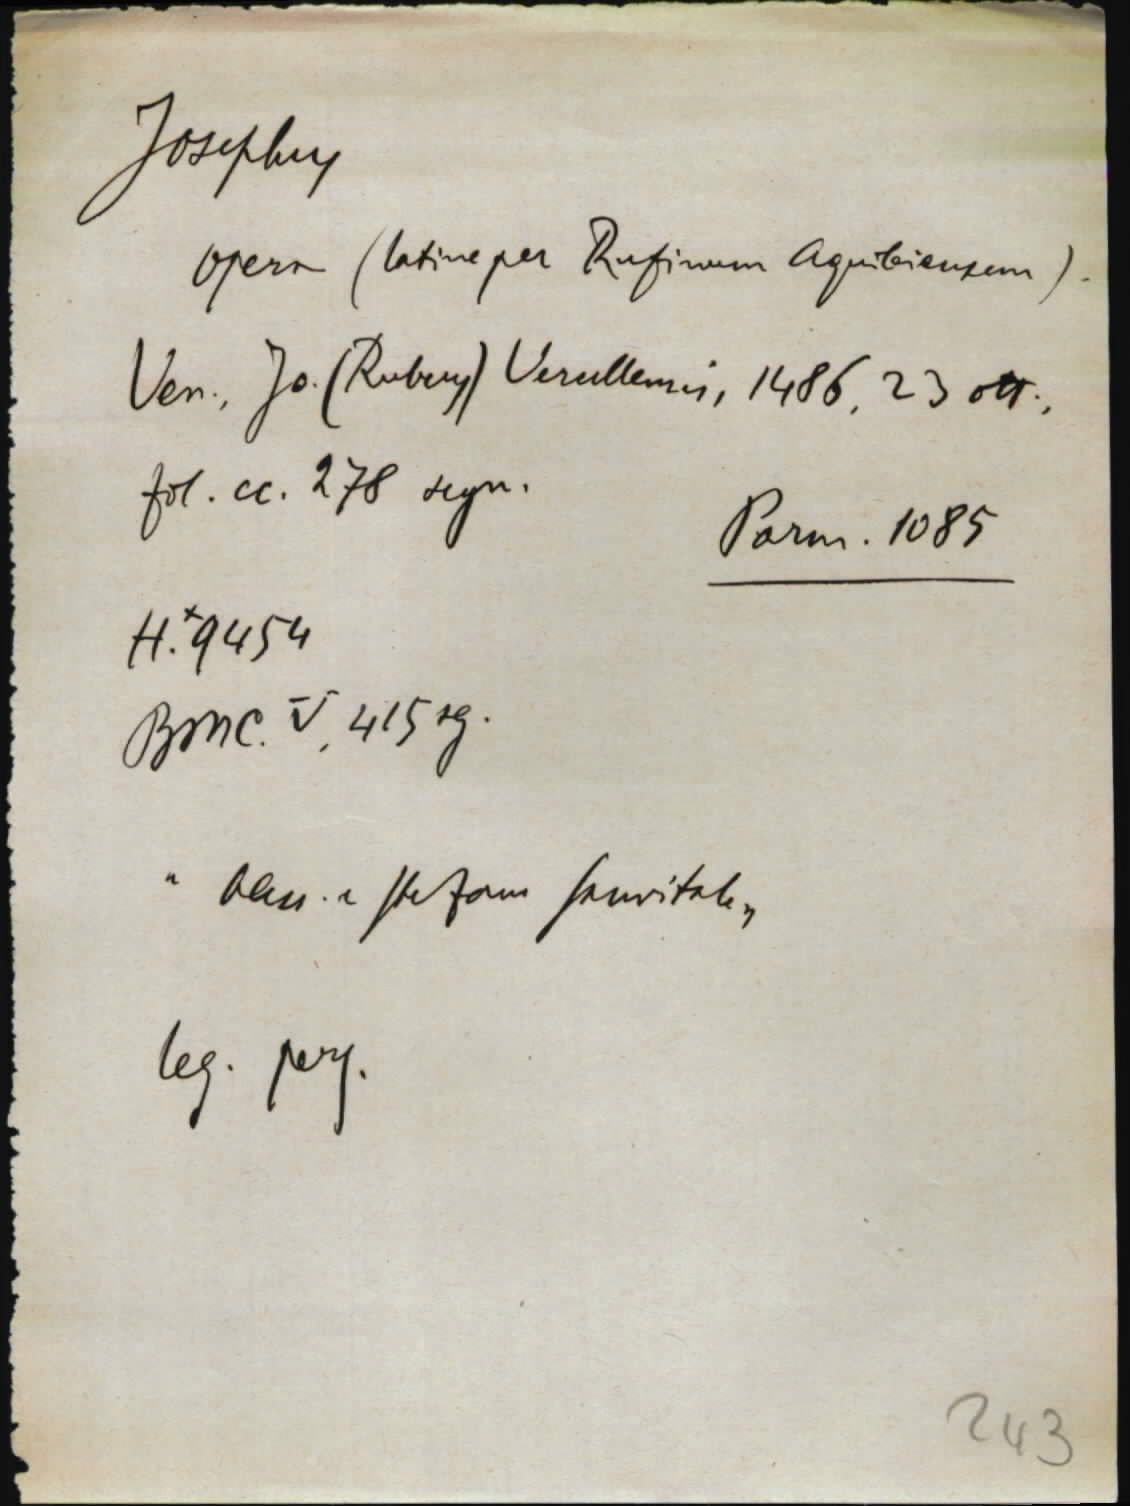 Josephus
opera (latine per Rufinum Aquileiensem).
Ven., Jo. (Rubeus) Vercellensis, 1486, 23 ott.,
fol. cc. 278 segn.
Parm. 1085
H.*9454
BMC. V, 415 sg.
" Stefano Sanvitale "
leg. perg.
243